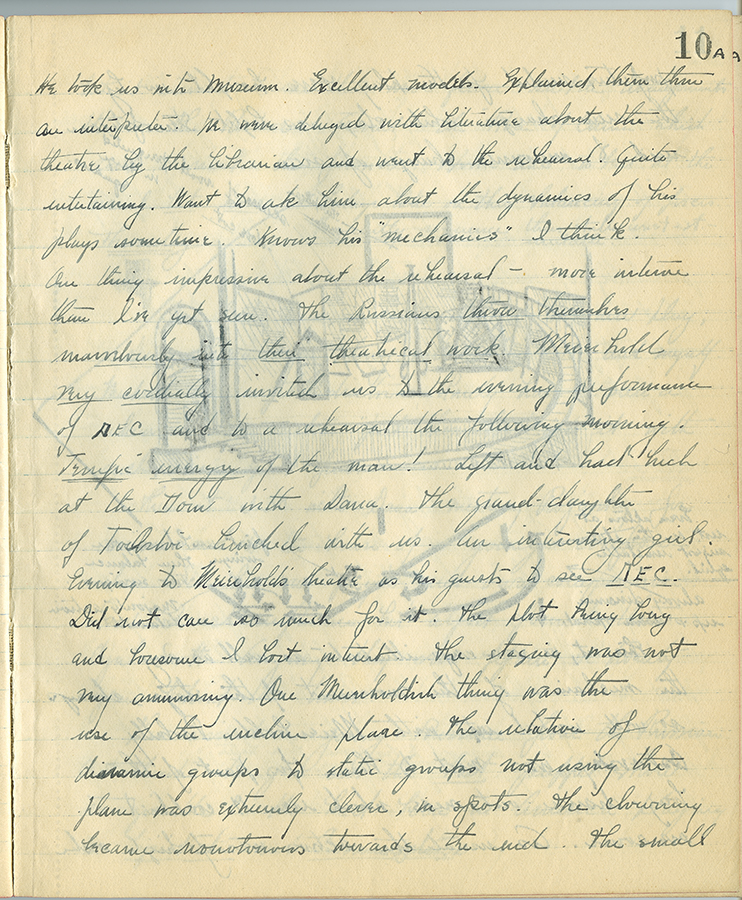 10AA
He took us into Museum. Excellent models. Explained them thru
an interpreter. We were deluged with literature about the
theatre by the librarian and went to the rehearsal. Quite
entertaining. Want to ask him about the dynamics of his
plays sometime. Knows his "mechanics" I think.
One thing impressive about the rehearsal – more intense
than I've yet seen. The Russians throw themselves
marvelously into their theatrical work. Meierhold
very cordially invited us to the evening performance
of ЛЕС and to a rehearsal the following morning.
Terrific energy of the man! Left and had lunch
at the Dom with Dana. The grand-daughter
of Tolstoi lunched with us. An interesting girl.
Evening to Meierhold's theatre as his guests to see ЛЕС.
Did not care so much for it. The plot being long
and boresome I lost interest. The staging was not
very ammusing. One Meierholdish thing was the
use of the incline plane. The relation of
dynamic groups to static groups not using the
plane was extremely clever, in spots. The clowning
became monotonous towards the end. The small